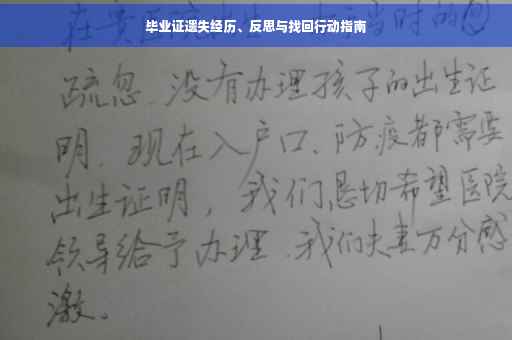 毕业证遗失经历、反思与找回行动指南
疏忽.没有办理孩子的出生证
明.现在入户口、防疫都需要
出生证明，我们恳切希望医院
领导给予办理.我们夫妻万分感
激。